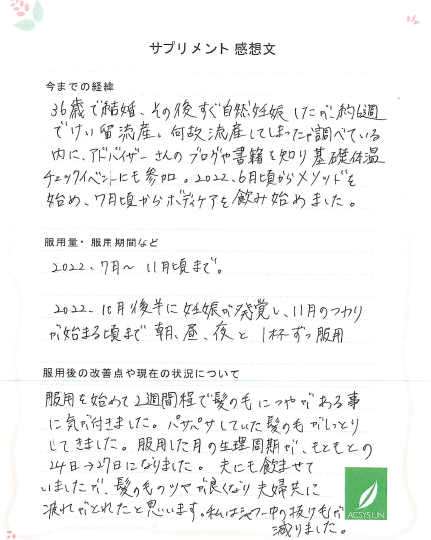 サプリメント感想文
今までの経緯
36歳で結婚、その後すぐ自然妊娠したが、約6週
でけい留流産。何故流産してしまったか調べている
内に、アドバイザーさんのブログや書籍を知り基礎体温
チェックイベントにも参加。2022.6月頃からメソッドを
始め、7月頃からボディケアを飲み始めました。
服用量・服用期間など
2022.7月〜11月頃まで。
2022.10月後半に妊娠が発覚し、11月のつわり
が始まる頃まで朝、昼、夜と1杯ずつ服用
服用後の改善点や現在の状況について
服用を始めて2週間程で髪の毛につやがある事
に気が付きました。パサパサしていた髪の毛がしっとり
してきました。服用した月の生理周期が、もともとの
24日→27日になりました。夫にも飲ませて
いましたが、髪の毛のツヤが良くなり夫婦共に
疲れがとれたと思います。私はシャワー中の抜け毛が
減りました。
ACSYSUN